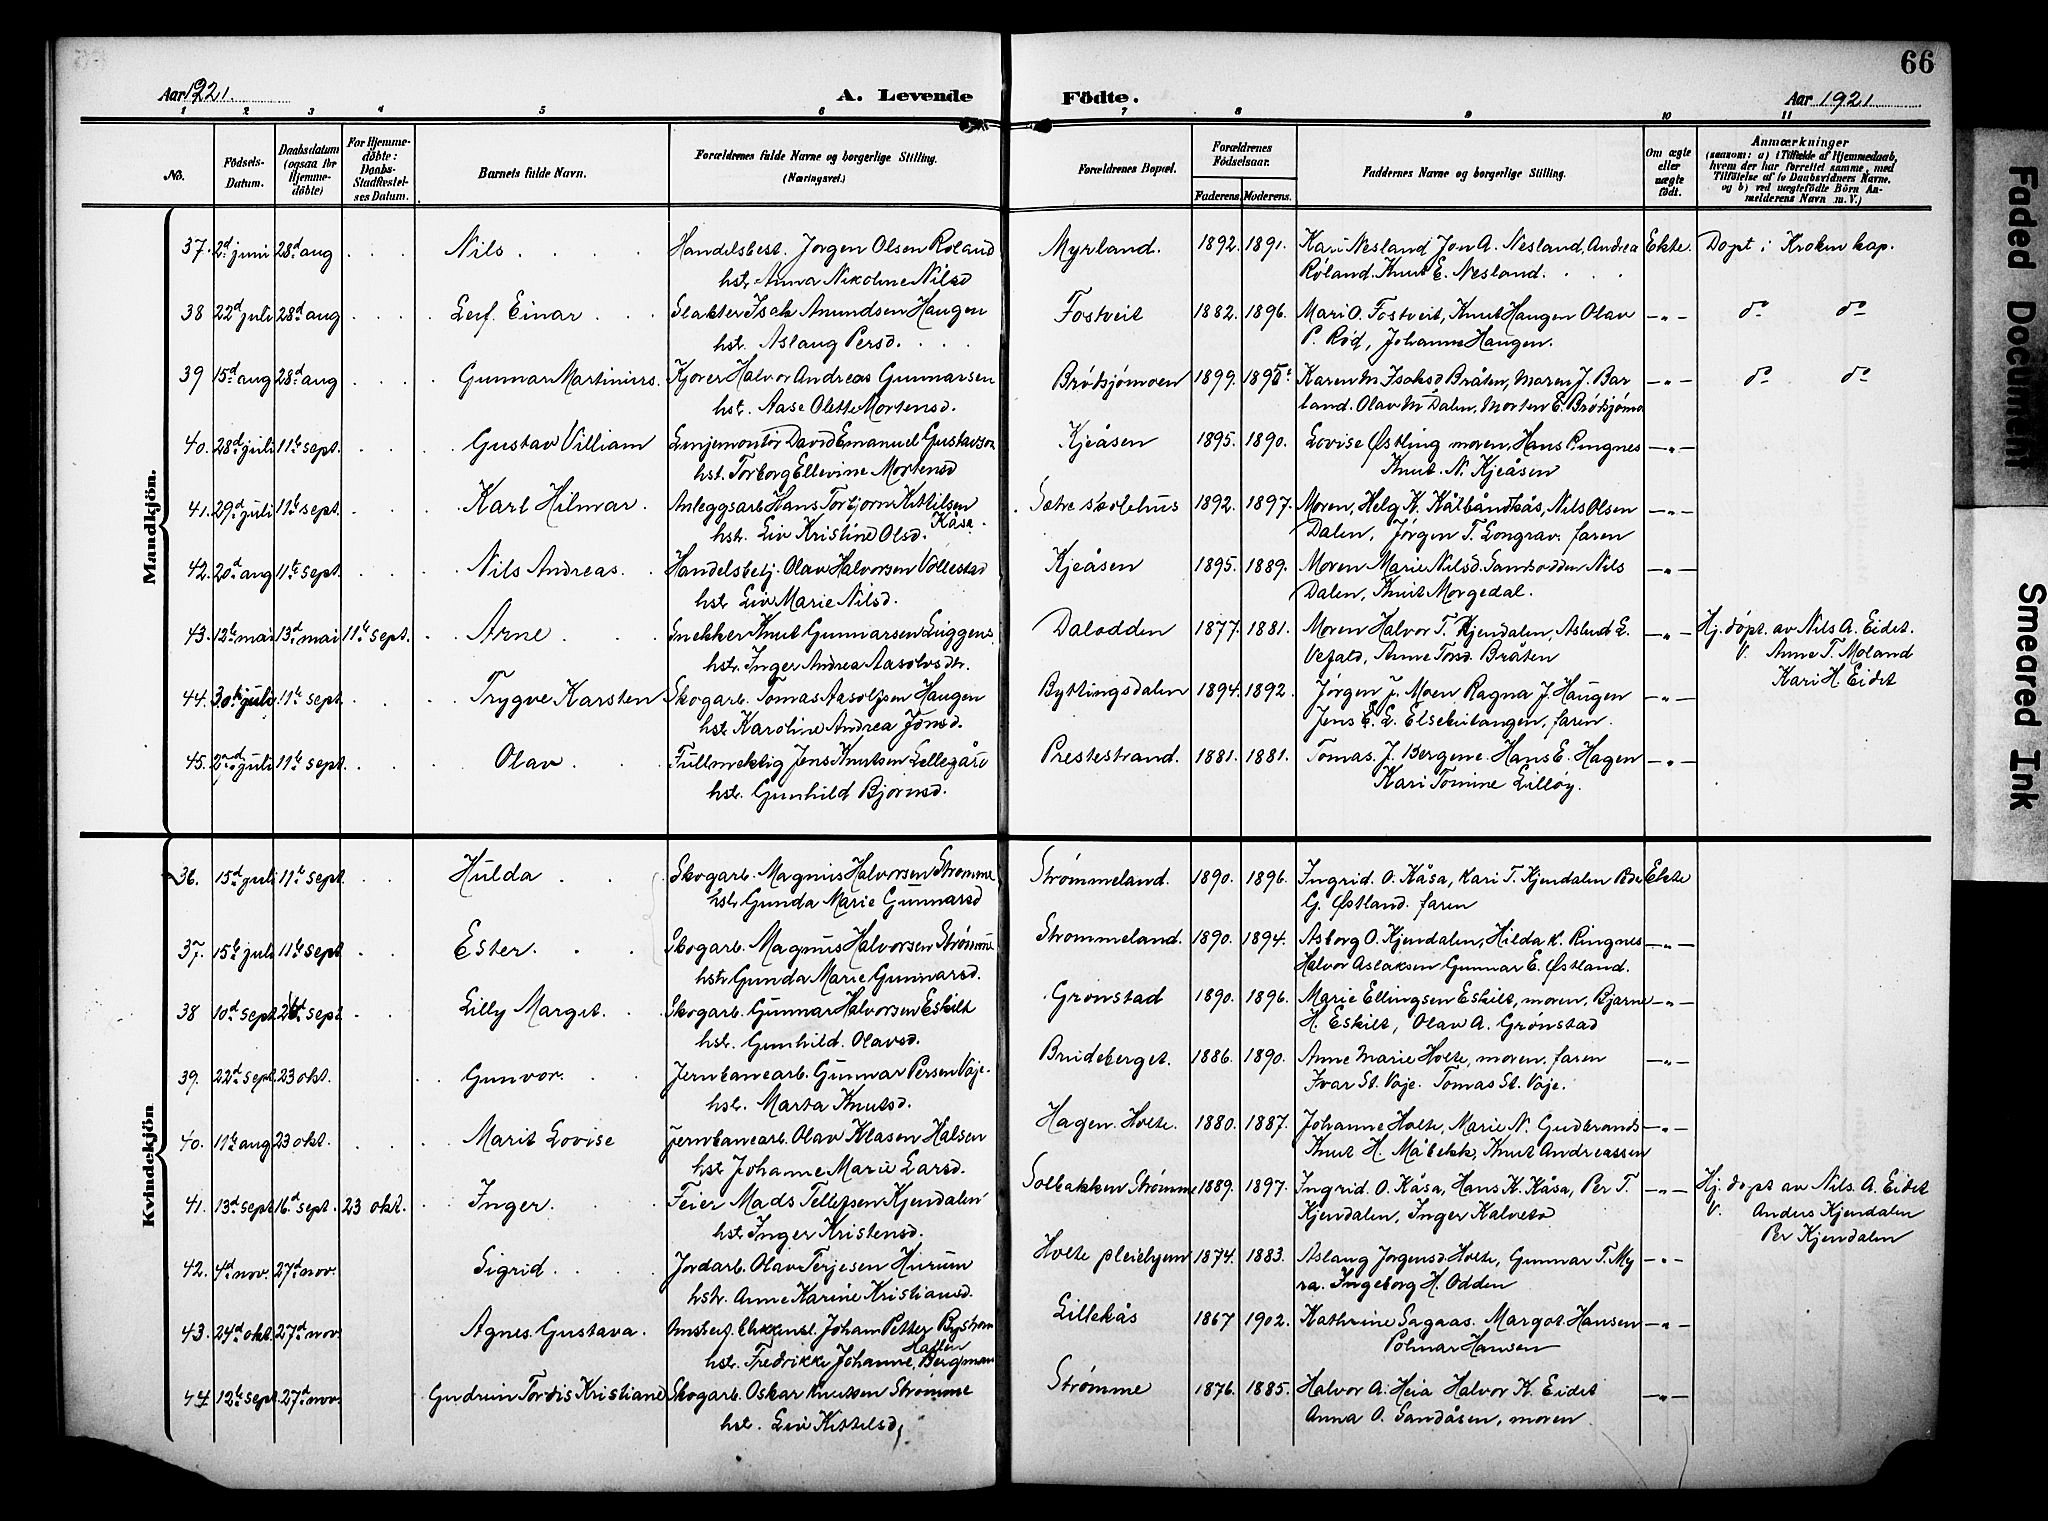 66
Aar 1921. A. Levende Födte. Aar 1921
1 2 3 4 5 6 7 8 9 10 11
No. Födsels-Datum. Daabsdatum (ogsaa for Hjemmedöbte) For Hjemmedöbte: Daabs-Stadfæstelses Datum. Barnets fulde Navn. Forældrenes fulde Navne og borgerlige Stilling. (Næringsvei.) Forældrenes Bopæl. Forældrenes Födselsaar. Faderens. Moderens. Faddernes Navne og borgerlige Stilling. Om ægte eller uægte födt. Anmærkninger (saasom: a) i Tilfælde af Hjemmedaab, hvem der har forrettet samme, med Tilföielse af to Daabsvidners Navne, og b) ved uægtefödte Börn Anmelderens Navn m. V.)
Mandkjön.
37. 2d juni 28d aug Nils Handelsbest. Jørgen Olsen Røland Myrland. 1892. 1891. Kari Nesland Jon A. Nesland, Andrea Ekte Døpt i Kroken kap.
hst. Anna Nikoline Nilsd Røland. Knut E. Nesland.
38 22d juli 28d aug Leif Einar Slakter Isak Amundsen Haugen Fostveit 1882. 1896. Mari O. Fostveit, Knut Haugen Olav -"- do do
hst. Aslaug Persd. P. Rød, Johanne Haugen.
39 15d aug 28d aug Gunnar Martinius Kjører Halvor Andreas Gunnarsen Brødsjømoen 1899. 1895. Karen M. Isaksd Bråten, Maren J. Bar -"- do do
hst. Aase Olette Mortensd. land. Olav M Dalen, Morten E. Brødsjømo
40. 28d juli 11te sept. Gustav Villiam Linjemontør David Emanuel Gustavson Kjeåsen 1895. 1890. Lovise Østling moren, Hans Ringnes -"-
hst. Torborg Ellevine Mortensd Knut. N. Kjeåsen
41. 29d juli 11te sept. Karl Hilmar Anleggsarb Hans Torbjørn Kittilsen Kåsa. Sætre skolehus 1892. 1897. Moren, Helg K. Kålbåndkås, Nils Olsen -"-
hst. Liv Kristine Olsd. Dalen, Jørgen T. Longrav. faren
42. 20d aug 11te sept. Nils Andreas. Handelsbetj. Olav Halvorsen Vollestad Kjeåsen 1895. 1889. Moren Marie Nilsd. Samsodden Nils -"-
hst. Liv Marie Nilsd. Dalen, Knut Morgedal.
43. 12te mai 13d mai 11te sept. Arne Snekker Knut Gunnarsen Liggens. Dalodden 1877. 1881. Moren Halvor T. Kjendalen, Aslaug L. -"- Hj. døpt. av Nils A. Eidet.
hst. Inger Andrea Aasolvsdtr. Vefald, Anne Torsd. Bråten V. Anne T. Moland
Kari H. Eidet
44. 30te juli 11te sept. Trygve Karsten Skogarb. Tomas Aasolfsen Haugen Byttingsdalen 1894. 1892. Jørgen J. Moen Ragna J. Haugen -"-
hst Karoline Andrea Jonsd. Jens E. L. Elseketangen, faren.
45. 2nd juli 11te sept. Olav Fullmektig Jens Knutsen Lillegård Prestestrand. 1881. 1881. Tomas. J. Bergene. Hans E. Hagen -"-
hst. Gunhild Bjørnsd. Kari Tomine Lilløy.
Kvindekjön
36. 15d juli 11te sept Hulda Skogarb. Magnus Halvorsen Strømme Strømmeland. 1890. 1896. Ingrid. O. Kåsa, Kari T. Kjendalen Ekte
hst. Gunda Marie Gunnarsd G. Østland. faren
37. 15te juli 11te sept Ester. Skogarb. Magnus Halvorsen Strømme Strømmeland. 1890. 1894. Asborg O. Kjendalen, Hilda K. Ringnes -"-
hst. Gunda Marie Gunnarsd. Halvor Aslaksen Gunnar E. Østland.
38 10d sept. 26d sept. Lilly Margit. Skogarb. Gunnar Halvorsen Eskilt Grønstad 1890. 1896. Marie Ellingsen Eskilt, moren, Bjarne -"-
hst. Gunhild. Olavsd. H. Eskilt, Olav A. Grønstad
39. 22d sept. 23 okt. Gunvor. Jernbanearb. Gunnar Persen Voje. Bruideberget. 1886. 1890. Anne Marie Holte, moren, faren -"-
hst. Marta Knutsd. Ivar St. Voje. Tomas St. Voje.
40. 11te aug 23 okt. Marit Lovise Jernbanearb. Olav Klasen Halsen Hagen. Holte. 1880. 1887. Johanne Holte, Marie N. Gudbrands -"-
hst Johanne Marie Larsd. Knut H. Måbekk, Knut Andreassen
41. 13d sept 16d sept. 23 okt. Inger. Feier Mads Tellefsen Kjendalen Solbakken Strømme 1889. 1897. Ingrid. O. Kåsa, Hans K. Kåsa, Per T. -"- Hj. døpt av Nils. A. Eidet
hst Inger Kristensd. Kjendalen, Inger Kalvetø V. Anders Kjendalen
Per Kjendalen
42. 4d nov. 27d nov. Sigrid Jordarb. Olav Terjesen Hurum Holte pleiehjem 1874. 1883. Aslaug Jørgensd. Holte, Gunnar T. My -"-
hst. Anne Karine Kristiansd. ra. Ingeborg H. Odden
43. 24d okt. 27d nov. Agnes. Gustava. Johan Petter Bystrøm Lillekås 1867 1902. Kathrine Sagaas. Margot Hansen -"-
hst. Fredrikke Johanne Bergman Polmar Hansen
44 12te sept. 27d nov. Gudrun Tordis Kristiane Skogarb. Oskar Knutsen Strømme Strømme 1876. 1885. Halvor A. Heia Halvor K. Eidet -"-
hst. Liv Kittelsd. Anna O. Sandåsen, moren
Faded Document
Smeared Ink